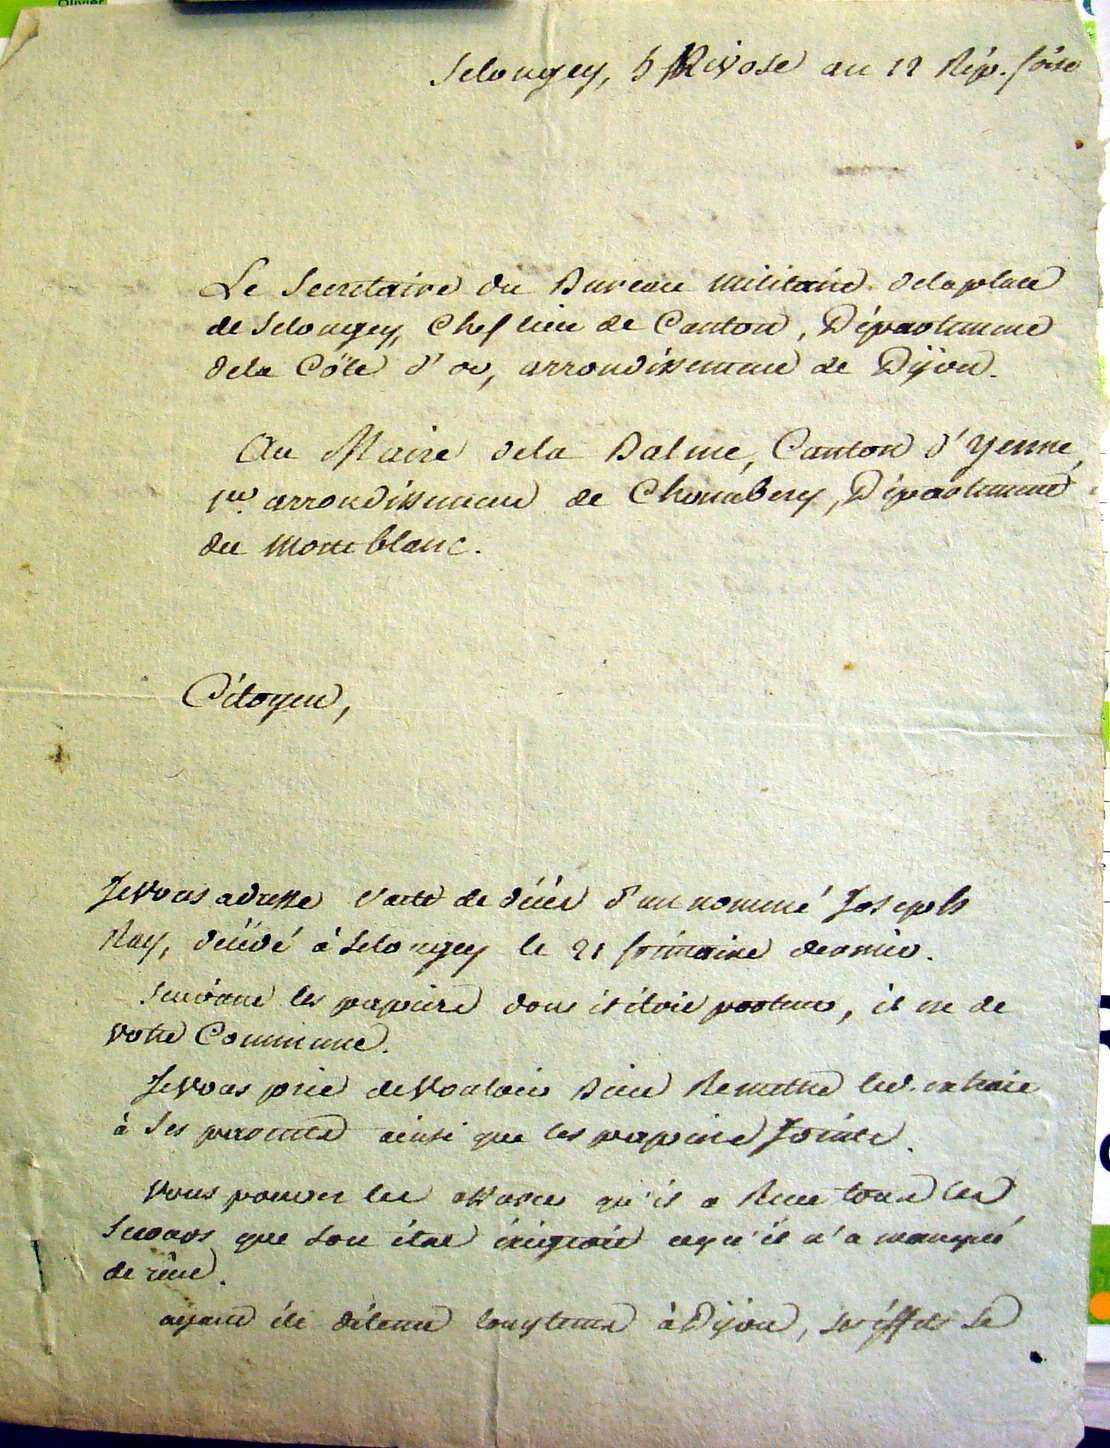 Olivier
Selongey, 5 Nivose an 12 Rép. fçse
Le Secretaire du Bureau militaire de la place
de Selongey, Chef lieu de Canton, Département
dela Côte d'or, arrondissement de Dijon.
Au Maire dela Balme, Canton d'yenne,
1er arrondissement de Chambery, Département
du Montblanc.
Citoyen,
Je vous adresse l'acte de décès d'un nommé Joseph
Ray, décédé à Selongey le 21 frimaire dernier.
Suivant les papiers dont il étoit porteur, il est de
votre Commune.
Je vous prie de vouloir bien Remettre cet extrait
à ses parents ainsi que les papiers Joints.
Vous pouvez les assurer qu'il a Reçu tous les
secours que son état éxigeoit et qu'il n'a manqué
de rien.
ayant été détenu longtems à Dijon, ses éffets se